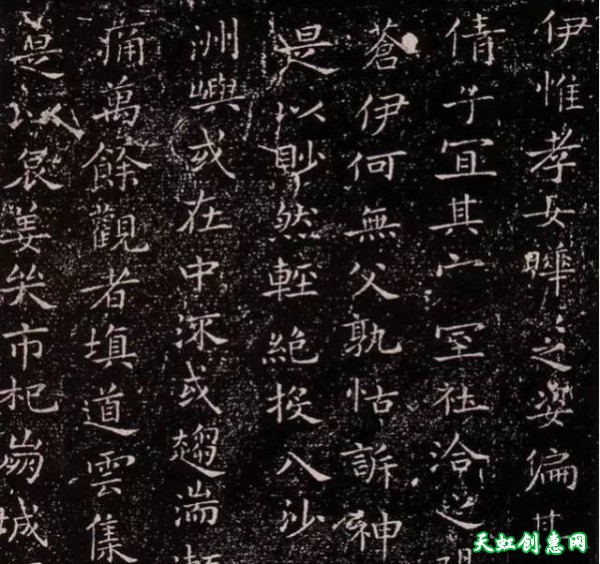 伊惟孝女曄〻之姿偏其
倩子冝其宀室在洽之
蒼伊何無父孰怙訴神
是以眇然輕絕投入沙
洲嶼或在中流或趨湍
痛萬餘觀者填道雲集
是以哀姜哭市杞崩城
天虹创惠网